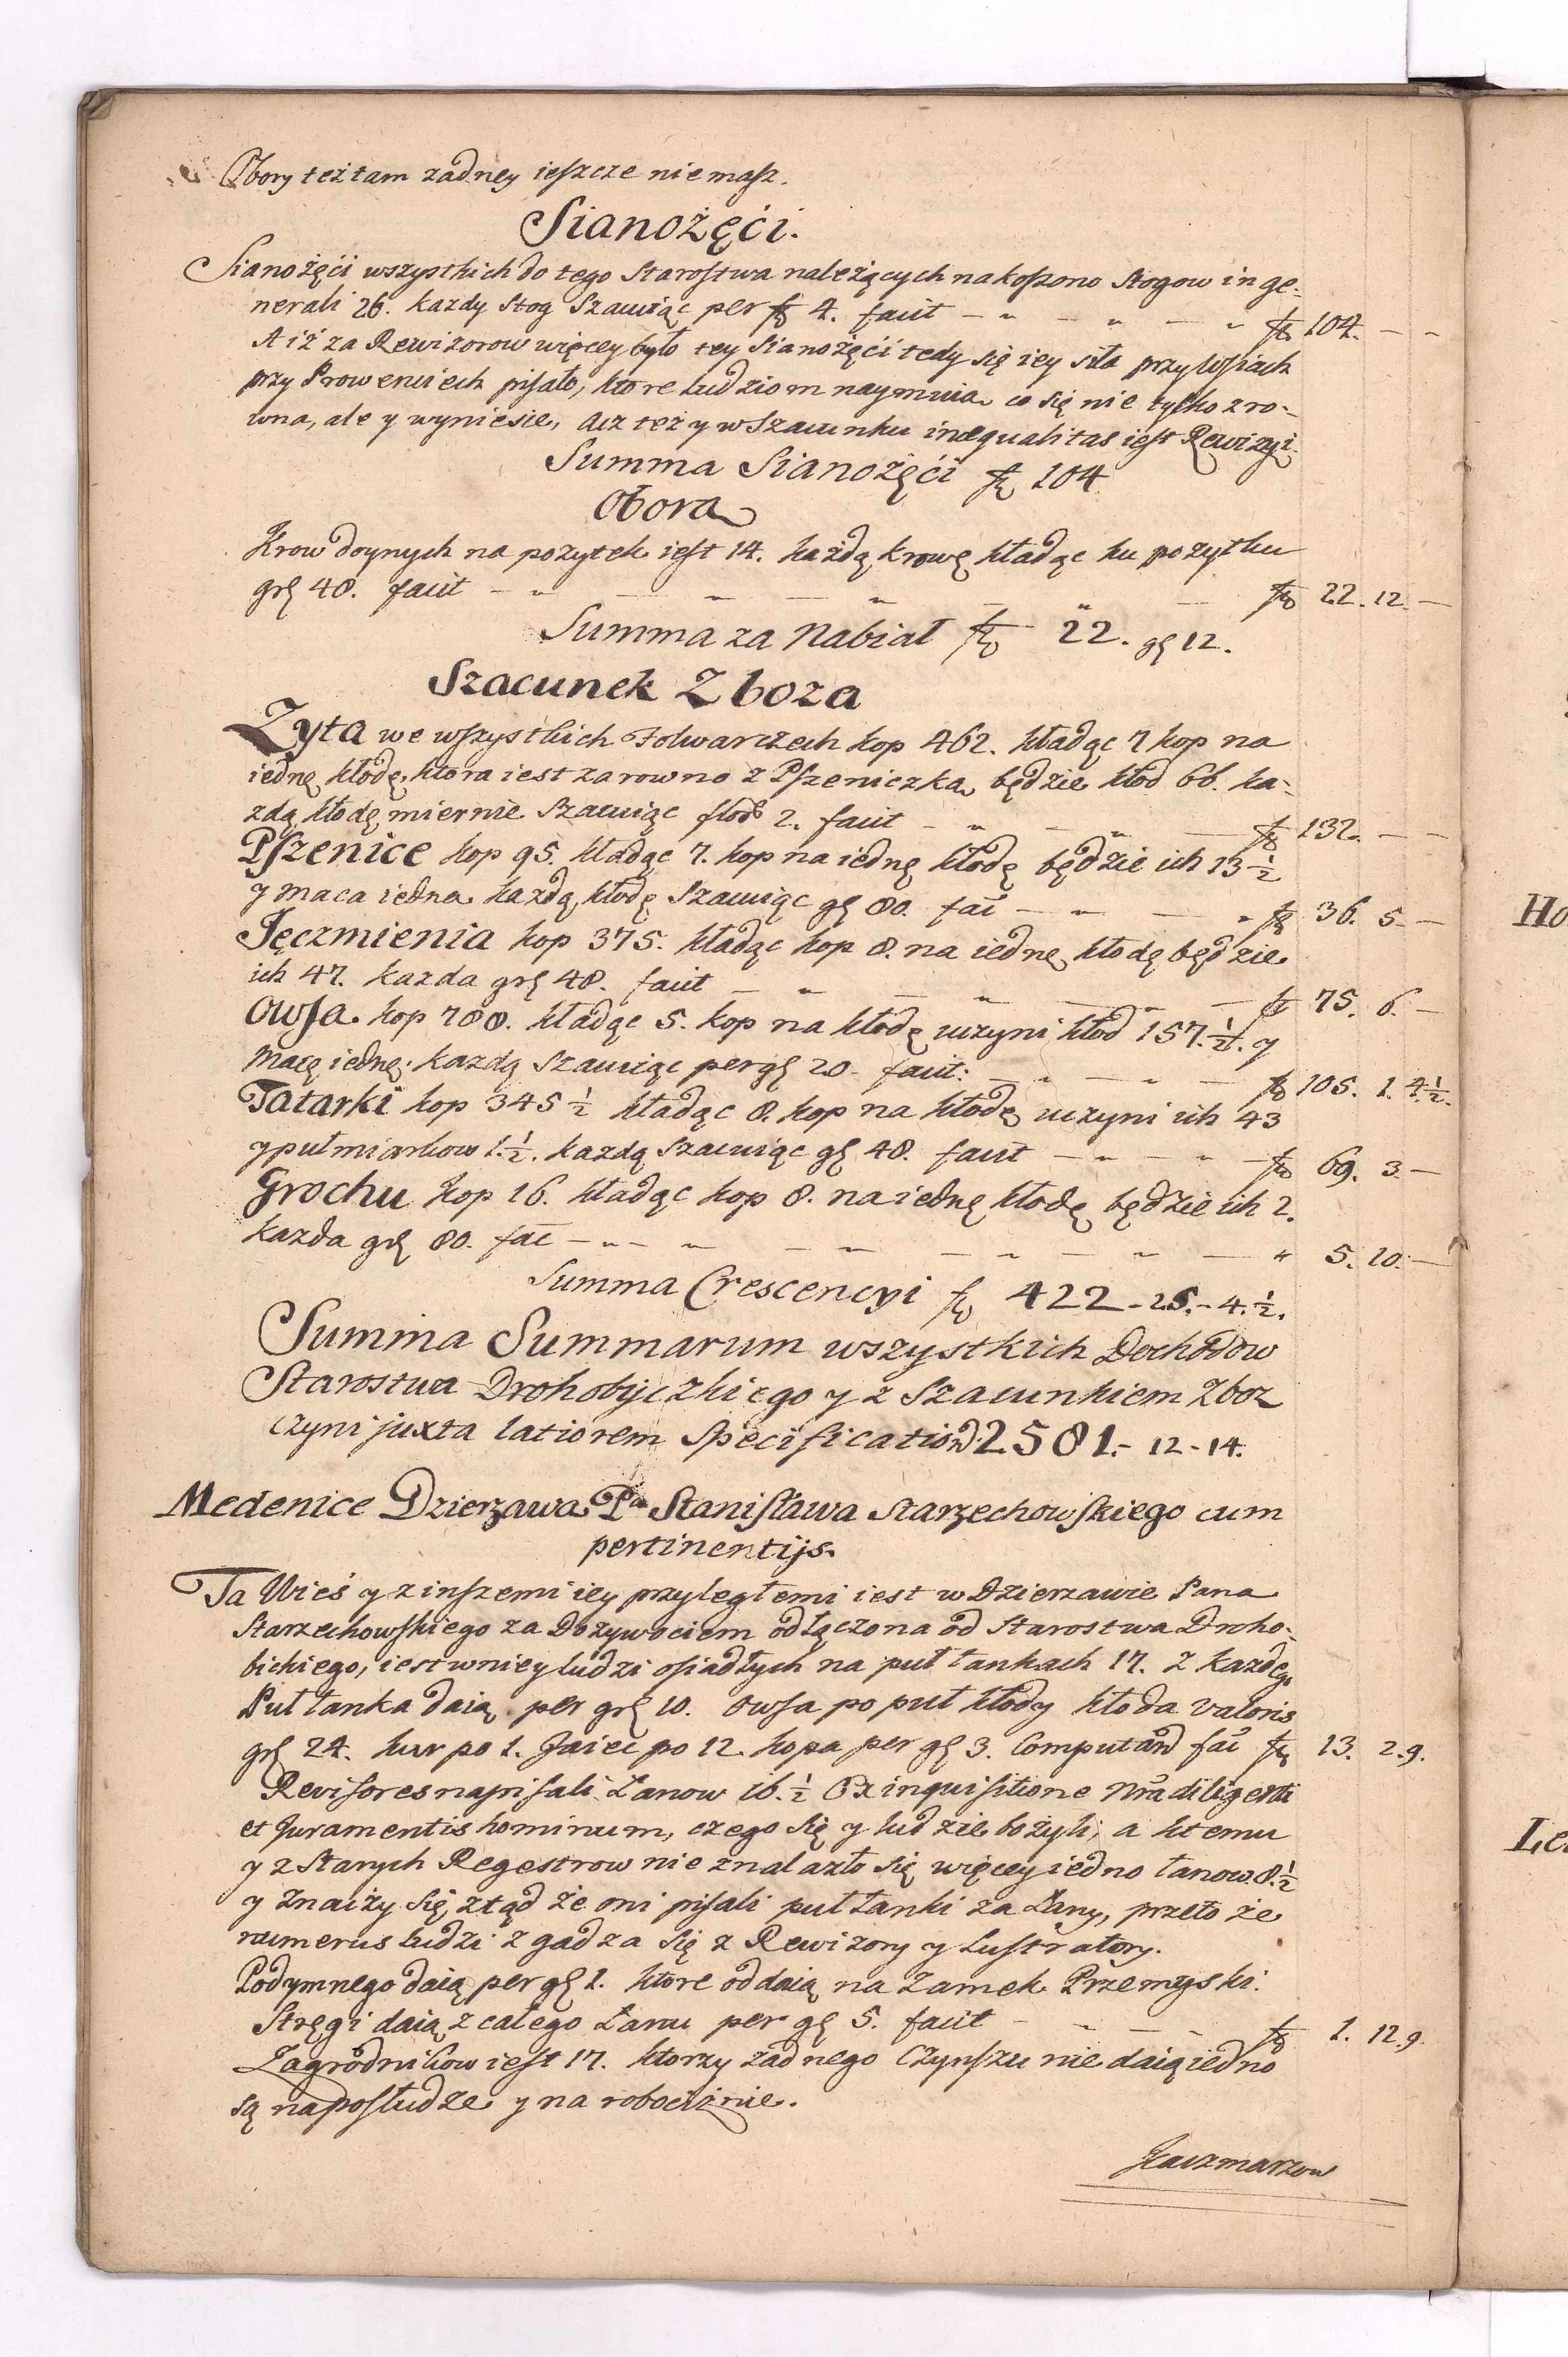 Obory też tam żadney ieszcze nie masz.
Sianożęći.
Sianożęći wszystkich do tego Starostwa należących nakoszono Stogow in ge-
nerali 26. każdy Stog Szacuiąc per fl 4. facit fl 104.
A iż za Rewizorow więcey było tey Sianożęći tedy się iey siła przy Wsiach
przy Prowenciech pisało, ktore ludziom naymuią co się nie tylko zro-
wna, ale y wyniesie, acz też y w Szacunku inæqualitas iest Rewizyi.
Summa Sianożęći fl 104
Obora
Krow doynych na pożytek iest 14. każdą krowę kładąc ku pożytku
grę 48. facit fl 22. 12.
Summa za Nabiał fl 22. gę 12.
Szacunek Zboza
Zyta we wszystkich Folwarczech kop 462. kładąc 7 kop na
iednę kłodę, ktora iest zarowno z Pszeniczką będzie kłod 66. ka-
zdą kłodę miernie Szacuiąc flor 2. facit fl 132.
Pszenice kop 95. kładąc 7. kop na iednę kłodę będzie ich 13 ½
y maca iedna każdą kłodę Szacuiąc gę 80. fac̃ fl 36. 5.
Jęczmienia kop 375. kładąc kop 8. na iednę kłodę będzie
ich 47. każda grę 48. facit fl 75. 6.
Owsa kop 788. kładąc 5. kop na kłodę uczyni kłod 157. ½. y
macę iednę. każdą Szacuiąc per gę 20. facit: fl 105. 1. 4 ½.
Tatarki kop 345 ½ kładąc 8. kop na kłodę uczyni ich 43
y pułmiarkow 1. ½. każdą szacuiąc gę 48. facit fl 69. 3.
Grochu kop 16. kładąc kop 8. na iednę kłodę będzie ich 2.
każda grę 80. fac̃ " 5. 10.
Summa Crescencyi fl 422. 25. 4. ½.
Summa Summarum wszystkich Dochodow
Starostwa Drohobyczkiego y z Szacunkiem Zboz
czyni juxta latiorem Specification̄ 2581. 12 - 14.
Medenice Dzierzawa Pa Stanisława Starzechowskiego cum
pertinentijs.
Ta Wieś y z inszemi iey przyległemi iest w Dzierzawie Pana
Starzechowskiego za Dożywociem odłączona od Starostwa Droho-
bickiego, iest w niey ludzi osiadłych na puł łankach 17. z każdego
Puł łanka daią per grę 10. Owsa po puł kłody kłoda valoris
grę 24. kur po 1. Jaiec po 12. kopa per gę 3. Computan̄d fac̃ fl 13. 2. 9.
Revisores napisali Łanow 16. ½ Ex inquisitione nr̃a diligenti
et Juramentis hominum, czego się y ludzie bożyli, a ktemu
y z Starych Regestrow nie znalazło się więcey iedno łanow. 8. ½
y znaiży się, ztąd że oni pisali puł łanki za Łany, przeto że
numerus ludzi zgadza się z Rewizory y Lustratory.
Podymnego daią per gę 1. ktore oddaią na Zamek Przemyski.
Stręgi daią z całego Łanu per gę 5. facit fl 1. 12. 9.
Zagrodnikow iest 17. ktorzy żadnego Czynszu nie daią iedno
są na posłudze y na robociźnie.
Kaczmarzow
Ho
Le